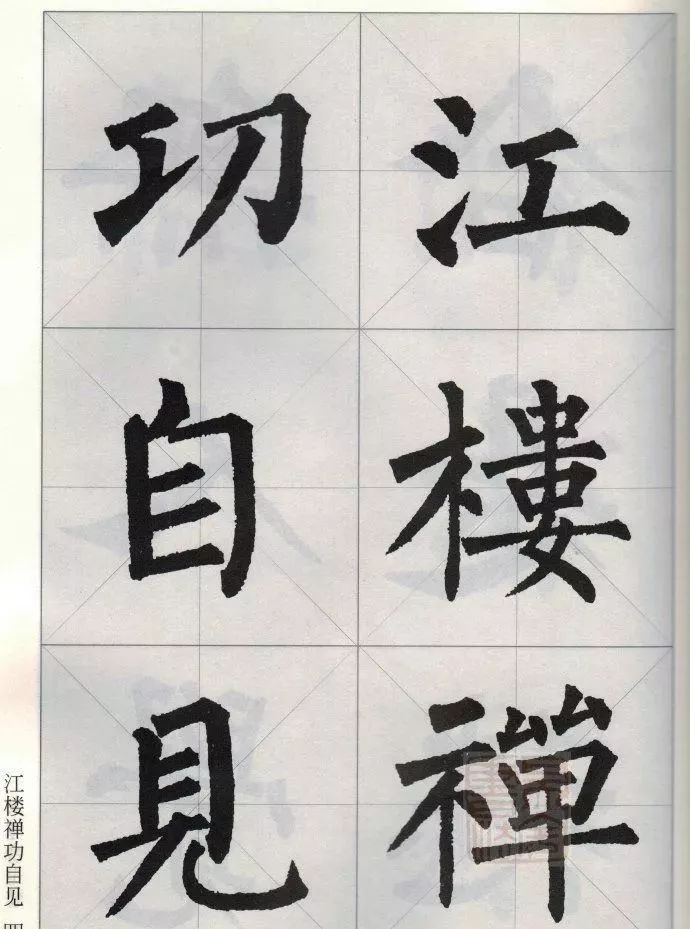 江樓禪
功自見
江楼禅功自见